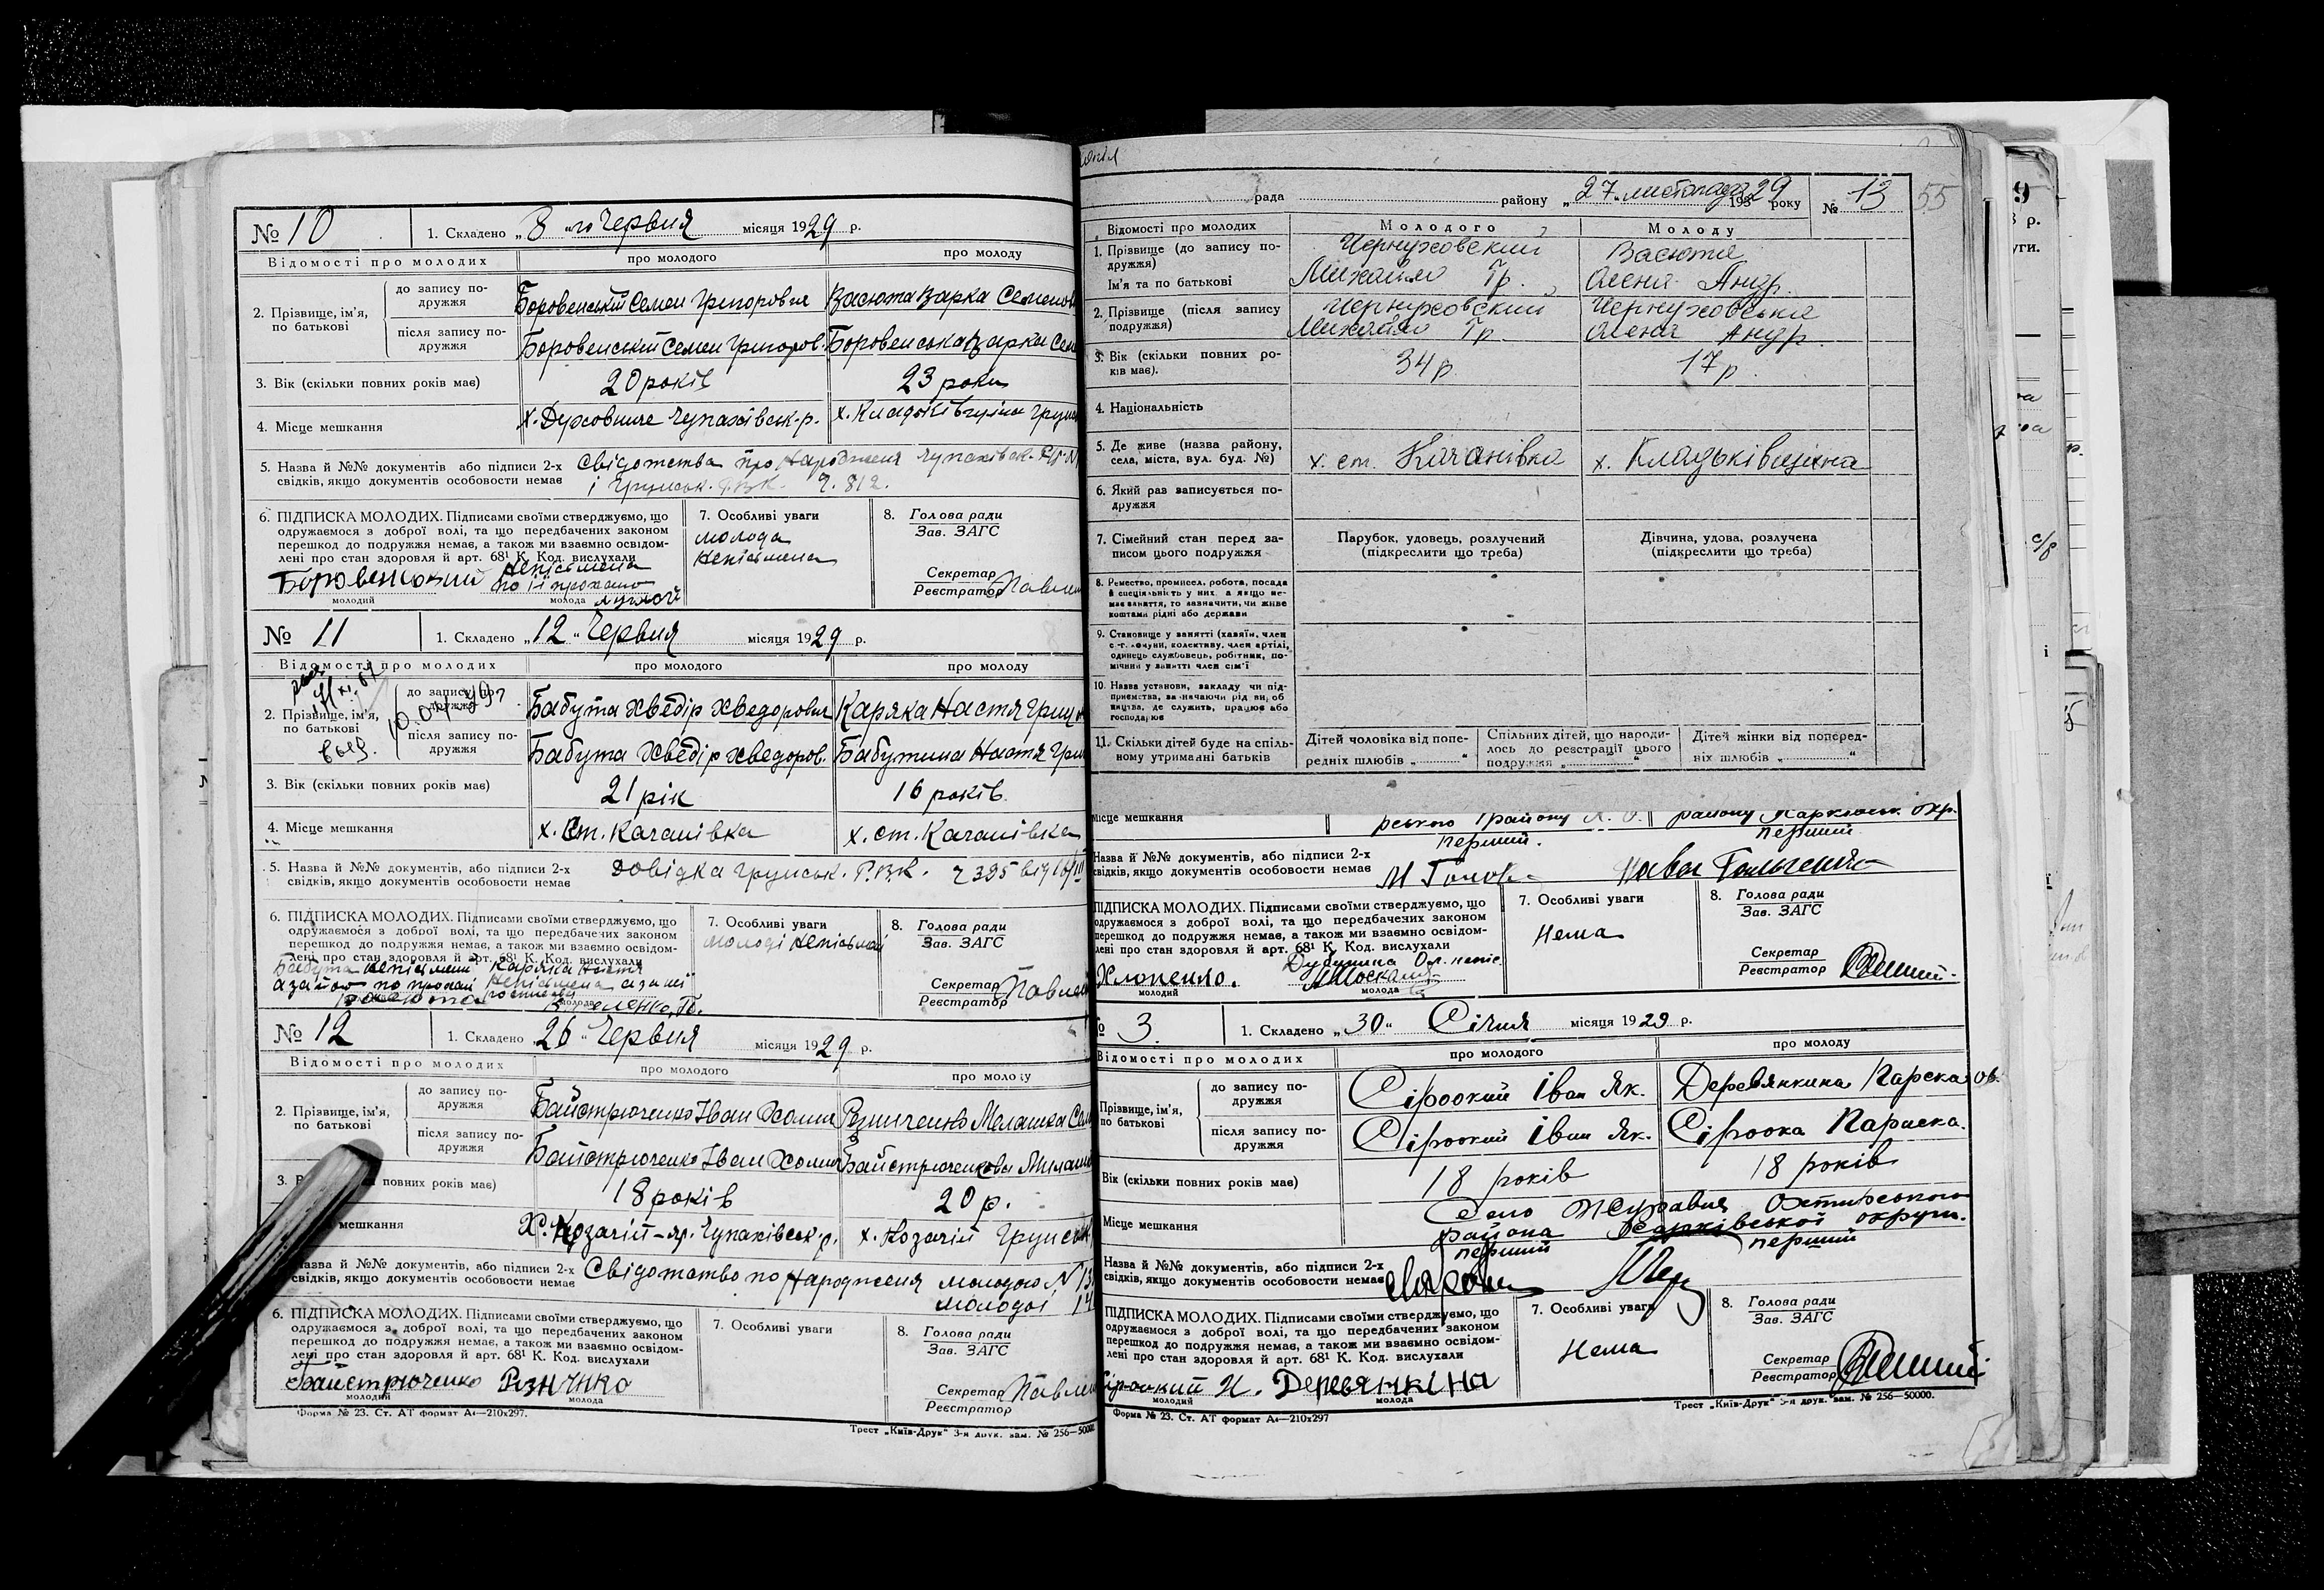 № 10 1. Складено „8 "го Червня місяця 1929 р.
Відомості про молодих про молодого про молоду
2. Прізвище, ім'я, по батькові
до запису подружжя Боровенський Семен Григорович Васюта Варка Семенов
після запису подружжя Боровенський Семен Григоров. Боровенська Варка Сем
3. Вік (скільки повних років має) 20 років 23 роки
4. Місце мешкання х. Духовниче Чупахівськ-р. х. Кладьківщина Грунс
5. Назва й №№ документів або підписи 2-х Свідотства про Народження Чупахівськ.
свідків, якщо документів особовости немає і Грунськ. Р.В.К. Ч. 812.
6. ПІДПИСКА МОЛОДИХ. Підписами своїми стверджуємо, що
одружаємося з доброї волі, та що передбачених законом
перешкод до подружжя немає, а також ми взаємно освідом-
лені про стан здоровля й арт. 68¹ К. Код. вислухали
Боровенський неписьмена
по її проханю
молодий молода
7. Особливі уваги
молода
неписьмена
8. Голова ради
Зав. ЗАГС
Секретар
Реєстратор Павлен
№ 11 1. Складено „12" Червня місяця 1929 р.
Відомості про молодих про молодого про молоду
2. Прізвище, ім'я, по батькові
до запису подружжя Бабута Хведір Хведорович Каряка Настя Григ
після запису подружжя Бабута Хведір Хведоров. Бабутина Настя Гри
3. Вік (скільки повних років має) 21 рік 16 років
4. Місце мешкання х. Ст. Качанівка х. ст. Качанівка
5. Назва й №№ документів, або підписи 2-х Довідка Грунськ. Р.В.К. ч 395 від
свідків, якщо документів особовости немає
6. ПІДПИСКА МОЛОДИХ. Підписами своїми стверджуємо, що
одружаємося з доброї волі, та що передбачених законом
перешкод до подружжя немає, а також ми взаємно освідом-
лені про стан здоровля й арт. 68¹ К. Код. вислухали
Бабута неписьмений Каряка Настя
а за його по прохані неписьмена а за нії
молода
7. Особливі уваги
молоді неписьмені
8. Голова ради
Зав. ЗАГС
Секретар
Реєстратор Павлен
№ 12 1. Складено „26" Червня місяця 1929 р.
Відомості про молодих про молодого про молоду
2. Прізвище, ім'я, по батькові
до запису подружжя Байстрюченко Іван Хомич Резниченко Мелашка Сем
після запису подружжя Байстрюченко Іван Хомич Байстрюченкова Милашк
3. В повних років має) 18 років 20 р.
мешкання Х. Козачій-яр. Чупахівськ-р. х. Козачій Грунськ
азва й №№ документів, або підписи 2-х Свідотство по Народження молодого №13
свідків, якщо документів особовости немає молодої 14
6. ПІДПИСКА МОЛОДИХ. Підписами своїми стверджуємо, що
одружаємося з доброї волі, та що передбачених законом
перешкод до подружжя немає, а також ми взаємно освідом-
лені про стан здоровля й арт. 68¹ К. Код. вислухали
Байстрюченко Різнчнко
молодий молода
7. Особливі уваги
8. Голова ради
Зав. ЗАГС
Секретар
Реєстратор Павлен
Форма № 23. Ст. АТ формат А4—210х297.
Трест „Київ-Друк" 3-я друк. зам. № 256—50000
рада району „27" листопада 1929 року № 13 55
Відомості про молодих Молодого Молоду
1. Прізвище (до запису подружжя) Чернуховский Васюта
Ім'я та по батькові Михайло Гр. Олена Андр.
2. Прізвище (після запису подружжя) Чернуховский Чернуховська
Михайло Гр. Олена Андр.
3. Вік (скільки повних років має). 34 р. 17 р.
4. Національність
5. Де живе (назва району, села, міста, вул. буд. №) х. ст. Качанівка х. Кладьківщина
6. Який раз записується подружжя
7. Сімейний стан перед записом цього подружжя
Парубок, удовець, розлучений (підкреслити що треба)
Дівчина, удова, розлучена (підкреслити що треба)
8. Ремество, промисел, робота, посада й спеціяльність у них, а якщо немає заняття, то зазначити, чи живе коштами рідні або держави
9. Становище у занятті (хазяїн, член с.-г. комуни, колективу, член артілі, одинець службовець, робітник, помічний у занятті член сім'ї
10. Назва установи, закладу чи підприємства, зазначаючи рід виробництва, де служить, працює або господарює
11. Скільки дітей буде на спільному утриманні батьків
Дітей чоловіка від попередніх шлюбів „ "
Спільних дітей, що народилось до реєстрації цього подружжя „ "
Дітей жінки від попередніх шлюбів „ "
Місце мешкання району Харківськ. окр.
перший. перший
Назва й №№ документів, або підписи 2-х
свідків, якщо документів особовости немає
ПІДПИСКА МОЛОДИХ. Підписами своїми стверджуємо, що
одружаємося з доброї волі, та що передбачених законом
перешкод до подружжя немає, а також ми взаємно освідом-
лені про стан здоровля й арт. 68¹ К. Код. вислухали
Хлопенко.
молодий молода
7. Особливі уваги
Нема
8. Голова ради
Зав. ЗАГС
Секретар
Реєстратор
№ 3 1. Складено „30" Січня місяця 1929 р.
Відомості про молодих про молодого про молоду
Прізвище, ім'я, по батькові
до запису подружжя Сіроокий Іван Як. Деревянкина Параска Ов.
після запису подружжя Сіроокий Іван Як. Сіроока Параска.
Вік (скільки повних років має) 18 років 18 років
Місце мешкання Село Журавня Охтирського
района Харківської округи.
перший перший
Назва й №№ документів, або підписи 2-х
свідків, якщо документів особовости немає
ПІДПИСКА МОЛОДИХ. Підписами своїми стверджуємо, що
одружаємося з доброї волі, та що передбачених законом
перешкод до подружжя немає, а також ми взаємно освідом-
лені про стан здоровля й арт. 68¹ К. Код. вислухали
Сіроокий И. Деревянкіна
молодий молода
7. Особливі уваги
Нема
8. Голова ради
Зав. ЗАГС
Секретар
Реєстратор
Форма № 23. Ст. АТ формат А4—210х297
Трест „Київ-Друк" 3-я друк. зам. № 256—50000.